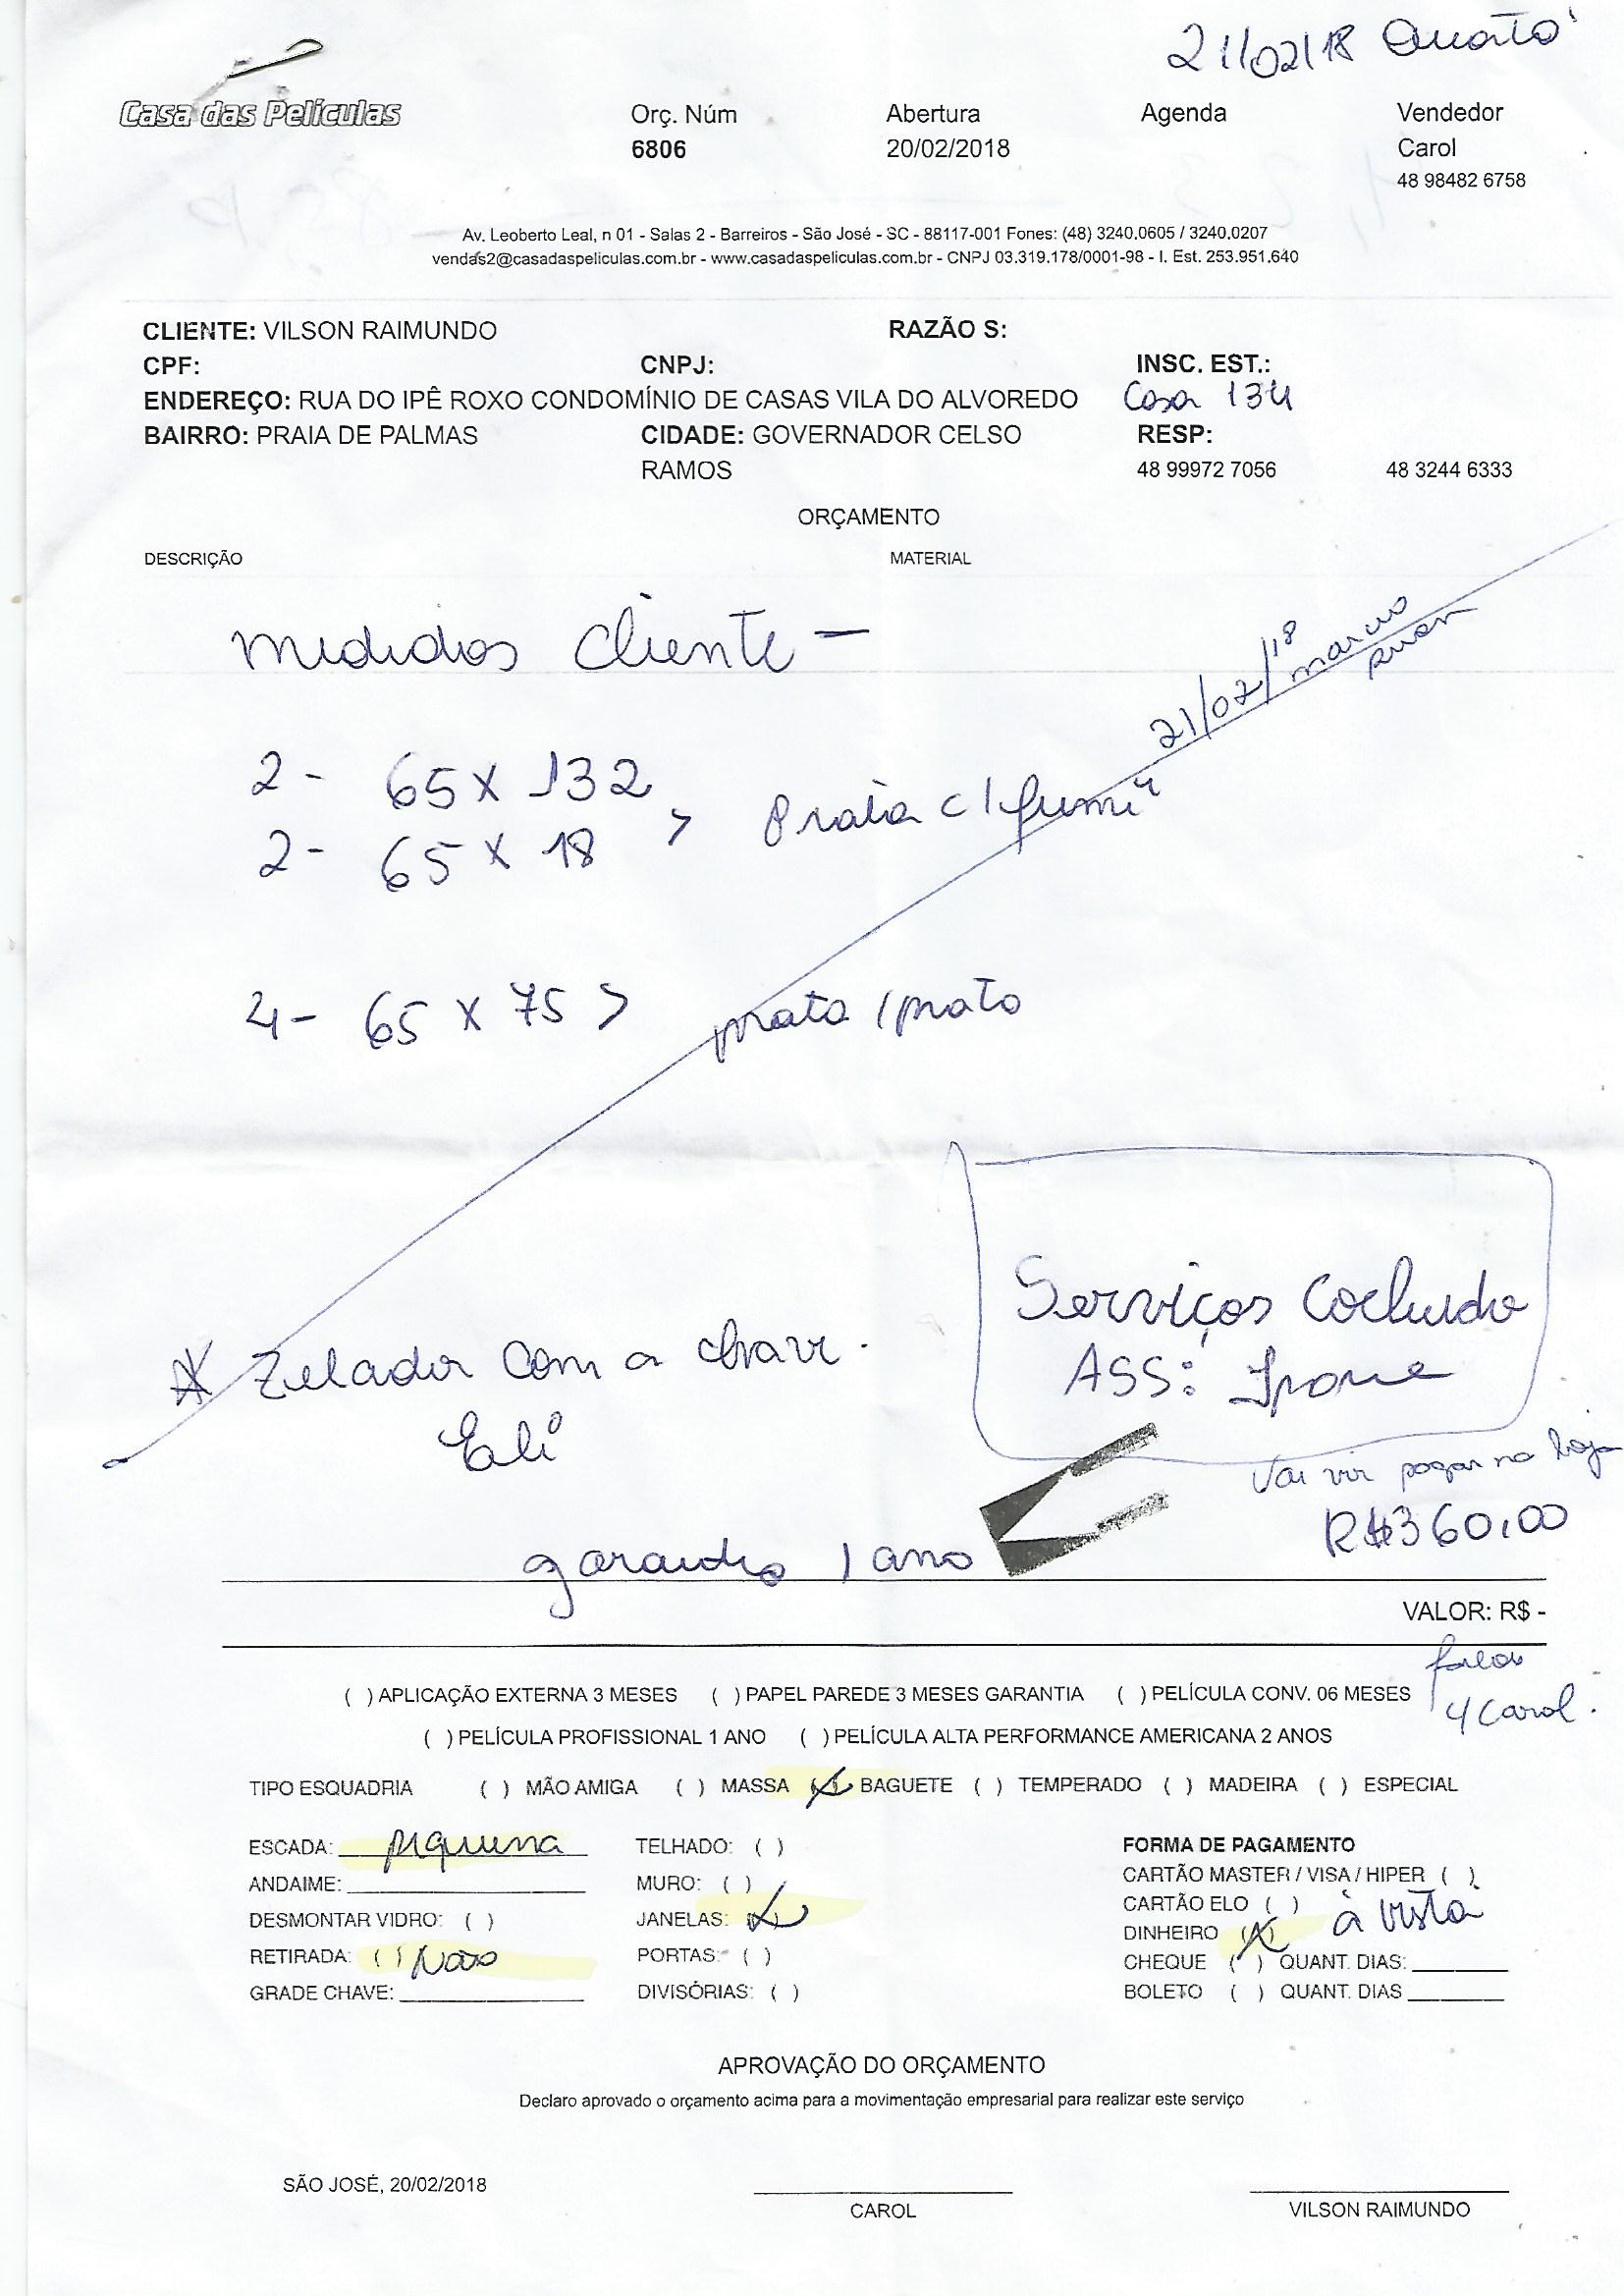 21/02/18 Quarta
Casa das Películas
Orç. Núm Abertura Agenda Vendedor
6806 20/02/2018 Carol
48 98482 6758
Av. Leoberto Leal, n 01 - Salas 2 - Barreiros - São José - SC - 88117-001 Fones: (48) 3240.0605 / 3240.0207
vendas2@casadaspeliculas.com.br - www.casadaspeliculas.com.br - CNPJ 03.319.178/0001-98 - I. Est. 253.951.640
CLIENTE: VILSON RAIMUNDO RAZÃO S:
CPF: CNPJ: INSC. EST.:
ENDEREÇO: RUA DO IPÊ ROXO CONDOMÍNIO DE CASAS VILA DO ALVOREDO Casa 134
BAIRRO: PRAIA DE PALMAS CIDADE: GOVERNADOR CELSO RESP:
RAMOS 48 99972 7056 48 3244 6333
ORÇAMENTO
DESCRIÇÃO MATERIAL
medidas Cliente -
21/02/18 marcio
2 - 65 x 132
2 - 65 x 18 > Prata c/ fumê
4 - 65 x 75 > prata / prata
Serviços Cocluido
ASS:
Zelador com a chave.
Eli
Vai vir pagar na loja
R$360,00
garantia 1 ano
VALOR: R$ -
falar
c/ Carol.
( ) APLICAÇÃO EXTERNA 3 MESES ( ) PAPEL PAREDE 3 MESES GARANTIA ( ) PELÍCULA CONV. 06 MESES
( ) PELÍCULA PROFISSIONAL 1 ANO ( ) PELÍCULA ALTA PERFORMANCE AMERICANA 2 ANOS
TIPO ESQUADRIA ( ) MÃO AMIGA ( ) MASSA (X) BAGUETE ( ) TEMPERADO ( ) MADEIRA ( ) ESPECIAL
ESCADA: pequena TELHADO: ( ) FORMA DE PAGAMENTO
ANDAIME: MURO: ( ) CARTÃO MASTER / VISA / HIPER ( )
DESMONTAR VIDRO: ( ) JANELAS: (X) CARTÃO ELO ( )
DINHEIRO (X) à vista
RETIRADA: ( ) Não PORTAS: ( ) CHEQUE ( ) QUANT. DIAS:
GRADE CHAVE: DIVISÓRIAS: ( ) BOLETO ( ) QUANT. DIAS
APROVAÇÃO DO ORÇAMENTO
Declaro aprovado o orçamento acima para a movimentação empresarial para realizar este serviço
SÃO JOSÉ, 20/02/2018
CAROL VILSON RAIMUNDO